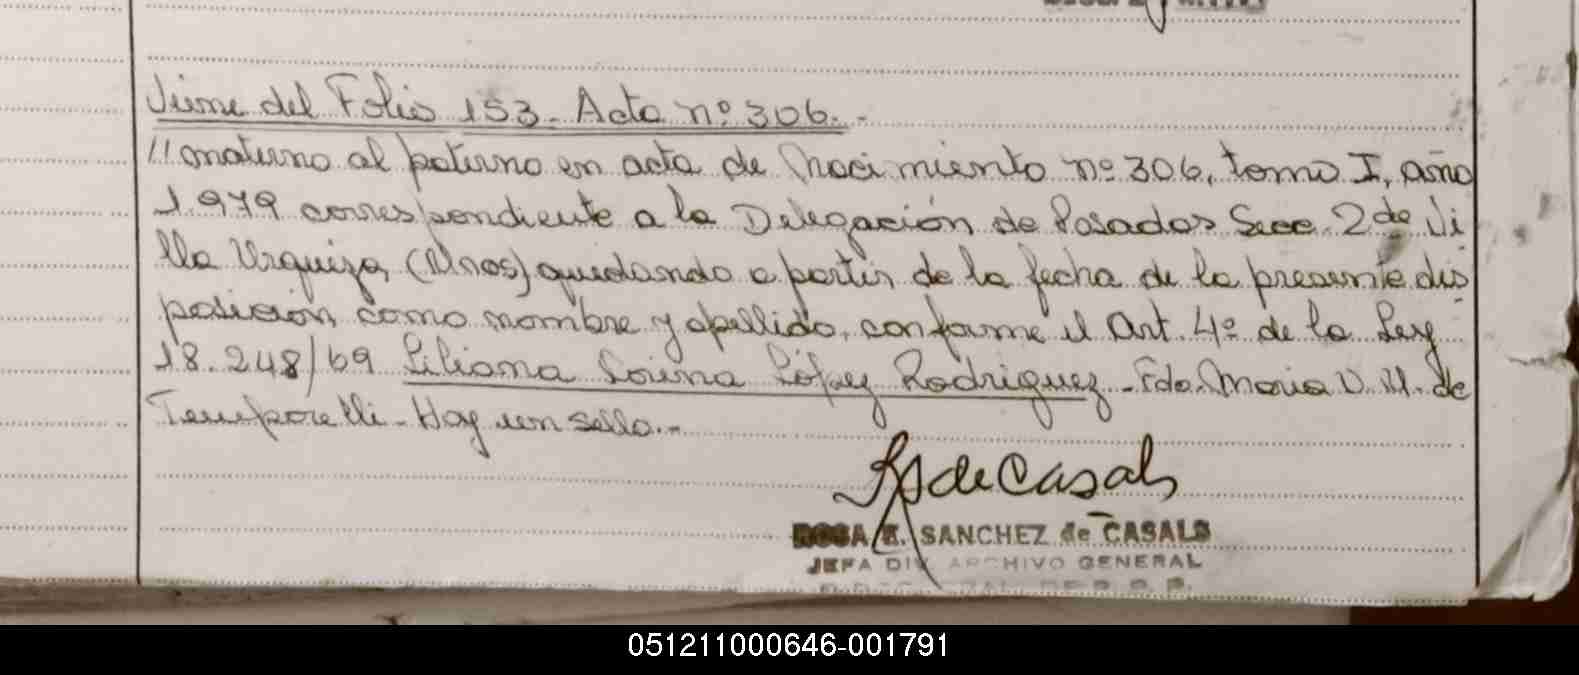 Viene del Folio 153 - Acta nº 306.-
// materno al paterno en acta de Nacimiento nº 306, tomo I, año
1.979 correspondiente a la Delegación de Posadas Secc. 2 de Vi
lla Urquiza, (Mnes) quedando a partir de la fecha de la presente dis
posición, como nombre y apellido, conforme el Art. 4º de la Ley
18.248/69 Liliana Lorena López Rodriguez - Fdo. Maria V. M. de
Temporelli - Hay un sello.-
RS de Casals
ROSA E. SANCHEZ de CASALS
JEFA DIV ARCHIVO GENERAL
051211000646-001791